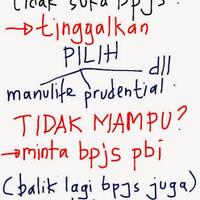 tidak suka bpjs?
→ tinggalkan
PILIH
manulife prudential dll
TIDAK MAMPU?
→ minta bpjs pbi
(balik lagi bpjs juga)